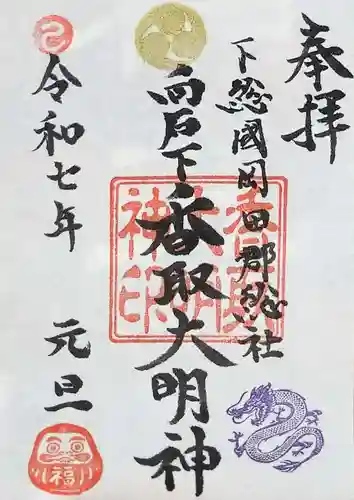 奉拝
下総國岡田郡総社
向石下香取大明神
香取大明神印
令和七年 元旦
福